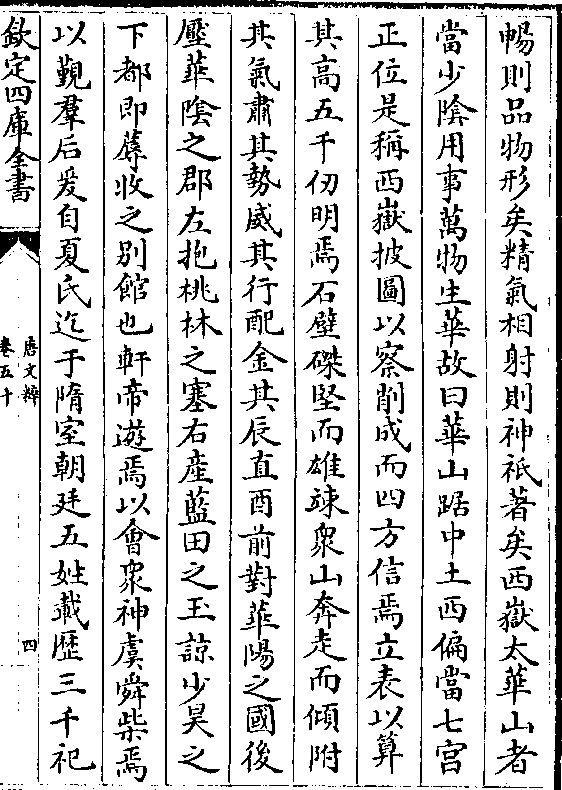 暢則品物形矣精氣相射則神祇著矣西嶽太華山者
當少陰用事萬物生華故曰華山踞中土西偏當七宫
正位是稱西嶽披圖以察削成而四方信焉立表以算
其高五千仞明焉石壁磔堅而雄竦衆山奔走而傾附
其氣肅其勢威其行配金其辰直酉前對華陽之國後
壓華陰之郡左抱桃林之塞右產藍田之玉諒少昊之
下都即蓐收之别館也軒帝遊焉以會衆神虞舜柴焉
以覲羣后爰自夏氏迄于隋室朝廷五姓載歷三千祀
欽定四庫全書
唐文粹
卷五十
四